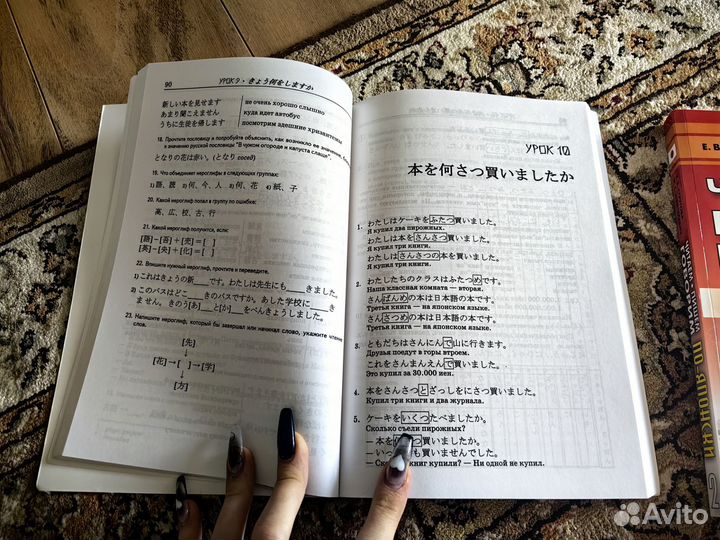 90
УРОК 9 · きょう何をしますか
新しい本を見せます
あまり聞こえません
うちに生徒を帰します
не очень хорошо слышно
куда идет автобус
посмотрим здешние хризантемы
18. Прочтите пословицу и попробуйте объяснить, как возникло ее значение,
к значению русской пословицы "В чужом огороде и капуста слаще".
となりの花は赤い。(となり сосед)
19. Что объединяет иероглифы в следующих группах:
1) 語、読 2) 何、今、人 3) 何、花 4) 紙、子
20. Какой иероглиф попал в группу по ошибке:
高、広、校、古、行
21. Какой иероглиф получится, если:
[語]－[吾]＋[売]＝[ ]
[英]－[央]＋[化]＝[ ]
22. Впишите нужный иероглиф, прочтите и переведите.
1) これはきょうの新___です。わたしは先生にも___きました。
2) このバスはどこ___きのバスですか。あした学校に___き
ません。きのう[あ]___と[か]___をべんきょうしました。
23. Напишите иероглиф, который бы завершал или начинал слово, укажите чтение
слов.
[先]
↓
[花]→[ ]→[学]
↓
[方]
УРОК 10
本を何さつ買いましたか
1. わたしはケーキをふたつ買いました。
Я купил два пирожных.
わたしは本をさんさつ買いました。
Я купил три книги.
わたしはさんさつの本を買いました。
Я купил три книги.
2. わたしたちのクラスはふたつめです。
Наша классная комната — вторая.
さんばんめの本は日本語の本です。
Третья книга — на японском языке.
さんさつめの本は日本語の本です。
Третья книга — на японском языке.
3. ともだちはさんにんで山に行きます。
Друзья поедут в горы втроем.
これをさんまんえんで買いました。
Это купил за 30.000 иен.
4. 本をさんさつとざっしをにさつ買いました。
Купил три книги и два журнала.
5. ケーキをいくつたべましたか。
Сколько съели пирожных?
— 本を つ買いましたか。
— いっ も買いませんでした。
— книг купили? — Ни одной не купил.
Е. В
ПО-ЯПОНСКИ
2
Avito